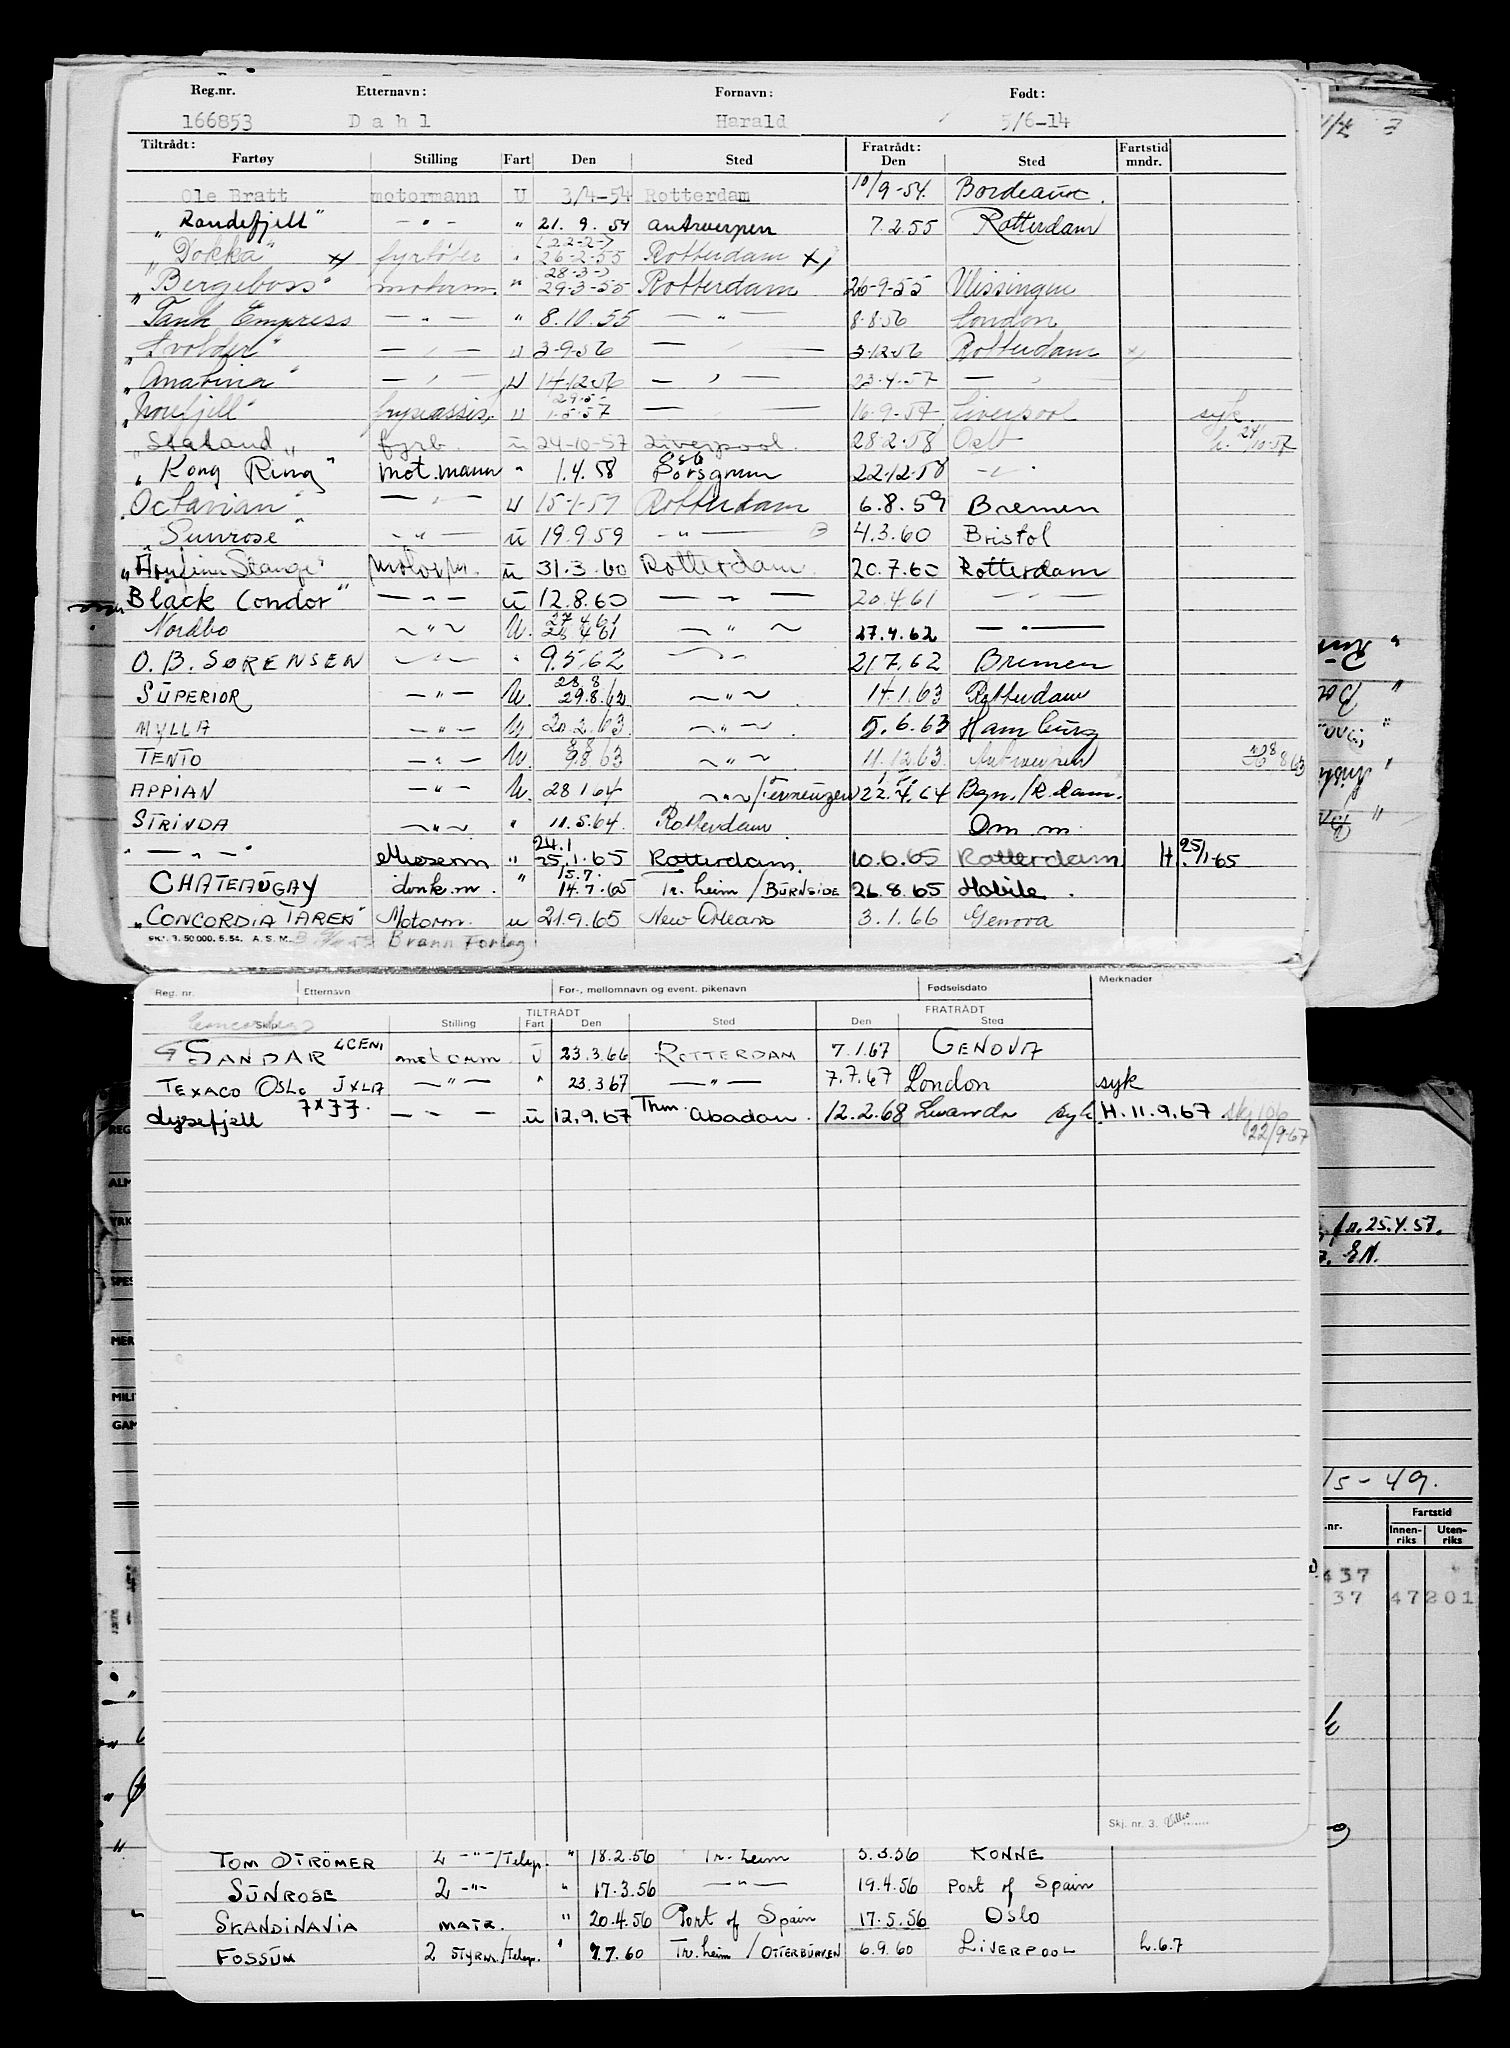 Reg.nr. Etternavn: Fornavn: Født:
166853 Dahl Harald 5/6-14
Tiltrådt: Fratrådt: Fartstid
Fartøy Stilling Fart Den Sted Den Sted mndr.
Ole Bratt motormann U 3/4-54 Rotterdam 10/9-54. Bordeaux.
"Randefjell" - " - " 21. 9. 54 Antwerpen 7.2.55 Rotterdam
(22-2-)
"Dokka" x) fyrbøter " 26-2-55 Rotterdam x)
28-3-)
"Bergeboss" motorm. " 29-3-55 Rotterdam 20-9-55 Vlissingen
"Tank Empress — " — " 8.10.55 — " — 8-8-56 London
"Svolder" — " — u 3-9-56 — " — 3-12-56 Rotterdam x)
"Anatina" — " — u 14-12-56 — " — 23-4-57 — " —
29-5-
"Norefjell" fryseassis. u 1-5-57 — — 16-9-57 Liverpool syk
"Staland" fyrb ü 24-10-57 Liverpool 28-2-58 Oslo h. 24/10-57
Oslo
"Kong Ring" mot.mann " 1.4.58 Porsgrunn 22.12.58 - " -
"Octavian" — " — u 15-1-59 Rotterdam 6.8.59 Bremen
"Sunrose" - " - ü 19.9.59 - " — 4.3.60 Bristol
"Höulinn Stange" motorm. ü 31.3.60 Rotterdam 20.7.60 Rotterdam
Black Condor" — " — ü 12.8.60 — " — 20.4.61 — " —
27 4 61
Nordbo — " — U. 26 4 61 — " — 27.4.62 — " —
O. B. SØRENSEN — " — " 9.5.62 — " — 21.7.62 Bremen
28.8
SUPERIOR — " — U. 29.8.62 — " — 14.1.63 Rotterdam
MYLLA — " — U. 20.2.63 — " — 5.6.63 Hamburg
8 8
TENTO — " — U. 9.8.63 — " — 11.12.63. Antwerpen
APPIAN — " — U. 28 1 64 — " — /Terneuzen 22.4.64 Bgn./R.dam.
STRINDA — " — " 11.5.64. Rotterdam Om m.
24.1
" — " — " Messem " 25.1.65 Rotterdam. 10.6.65 Rotterdam H. 25/1-65
15.7.
CHATEAUGAY donk.m. " 14.7.65 Tr.heim/BURNSIDE 26.8.65 Mobile.
"CONCORDIA TAREK" Motorm. u 21.9.65 New Orleans 3.1.66 Genova
Skj. 3. 50 000. 5. 54. A. S. M. Brann Forlag
Reg. nr. Etternavn For-, mellomnavn og event. pikenavn Fødselsdato Merknader
TILTRÅDT FRATRÅDT
Skip Stilling Fart Den Sted Den Sted
SANDAR LCEN1 motorm. U 23.3.66 ROTTERDAM 7.1.67 GENOVA
TEXACO OSLO JXLA — " — " 23.3.67 — " — 7.7.67 London syk
Lysefjell — - — ü 12.9.67 Thm. Abadan. 12.2.68 Luanda syk. H. 11.9.67
22/9-67
fr. 25.4.57.
EN.
15-49.
Fartstid
nr. Innen-riks Uten-riks
437
37 47 201
Skj. nr. 3.
TOM STRÖMER 2 -"-/Telegr. " 18.2.56 Tr.heim 5.3.56 RÖNNE
SUNROSE 2 -"- " 17.3.56 — " — 19.4.56 Port of Spain
SKANDINAVIA MATR. " 20.4.56 Port of Spain 17.5.56 Oslo
FOSSUM 2 STYRM./Telegr. " 7.7.60 Tr.heim/OTTERBURKEN 6.9.60 LIVERPOOL h.6.7